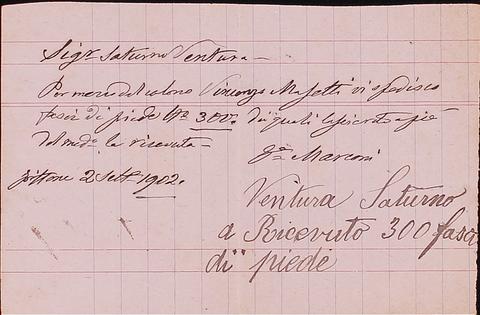 Sigr Saturno Ventura —
Per mezzo del colono Vincenzo Masetti vi spedisco
fasci di piede No 300. dei quali lascierete a piè
del mede la ricevuta —
Marconi
2 Sett. 1902.
Ventura Saturno
a Ricevuto 300 fasci
di piede